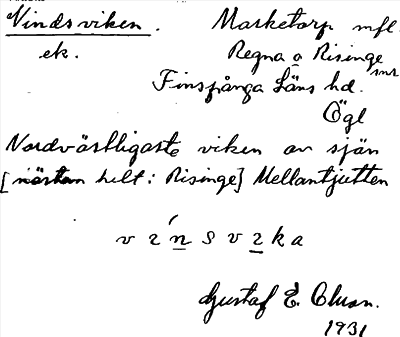 Vindsviken. Marketorp mfl.
ek. Regna o Risinge
snr
Finspånga Läns hd.
Ögl
Nordvästligaste viken av sjön
[nästan helt: Risinge] Mellantjutten
v ɩ ń s v ɩ k a
Gustaf E. Olsson.
1931